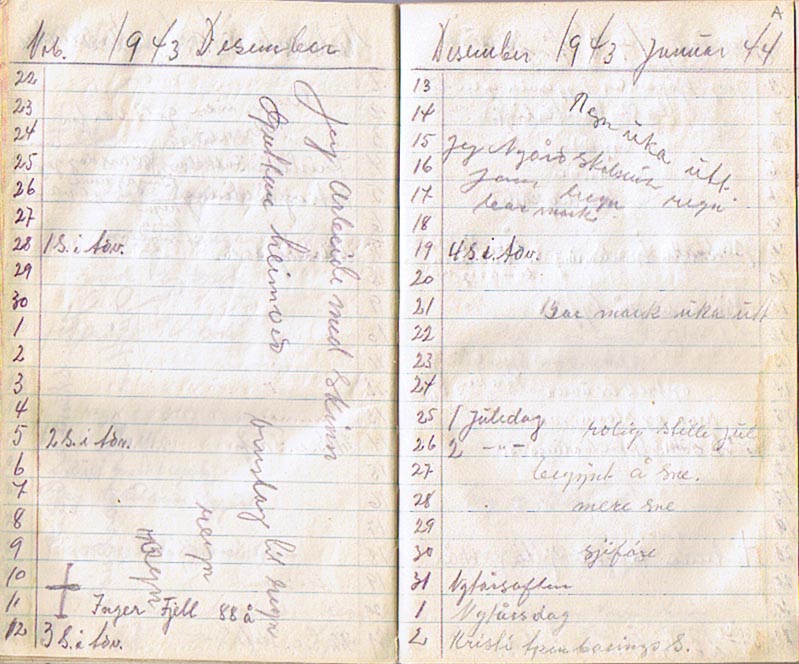 Nov. 1943 Desember
22
23
24
25
26
27
28 1 S. i Adv.
29
30
1
2
3
4
5 2 S. i Adv.
6
7
8
9
10
11 Inger Fjell 88 å
12 3 S. i Adv.
Jeg arbeide med Skinn
heimved
lit regn
regn
Regn
A
Desember 1943 Januar 44
13
14 Regn uka utt
15 Jeg regn
16 regn
17 bar mark
18
19 4 S. i Adv.
20
21 Bar mark uka utt
22
23
24
25 1 Juledag rolig stille jul
26 2 -"-
27 begynt å sne.
28 mere sne
29
30 sjiføre
31 Nyårsaften
1 Nyårsdag
2 Kristi åpenbarings S.